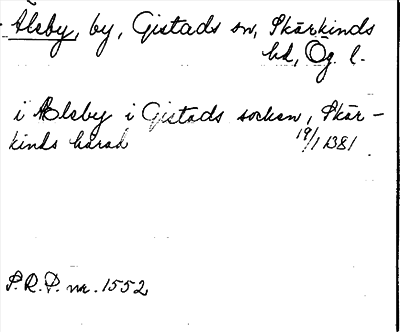 Ålsby, by, Gistads sn, Skärkinds
hd, Ög. l.
i Alsby i Gistads socken, Skär-
kinds härad 19/1 1381.
P.R.P. nr. 1552